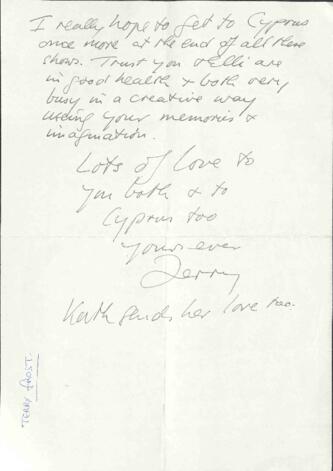 I really hope to get to Cyprus
once more at the end of all these
shows. Trust you & Elli are
in good health & both very
busy in a creative way
using your memories &
imagination.
Lots of love to
you both & to
Cyprus too
yours ever
Terry
Kath sends her love too.
TERRY FROST.